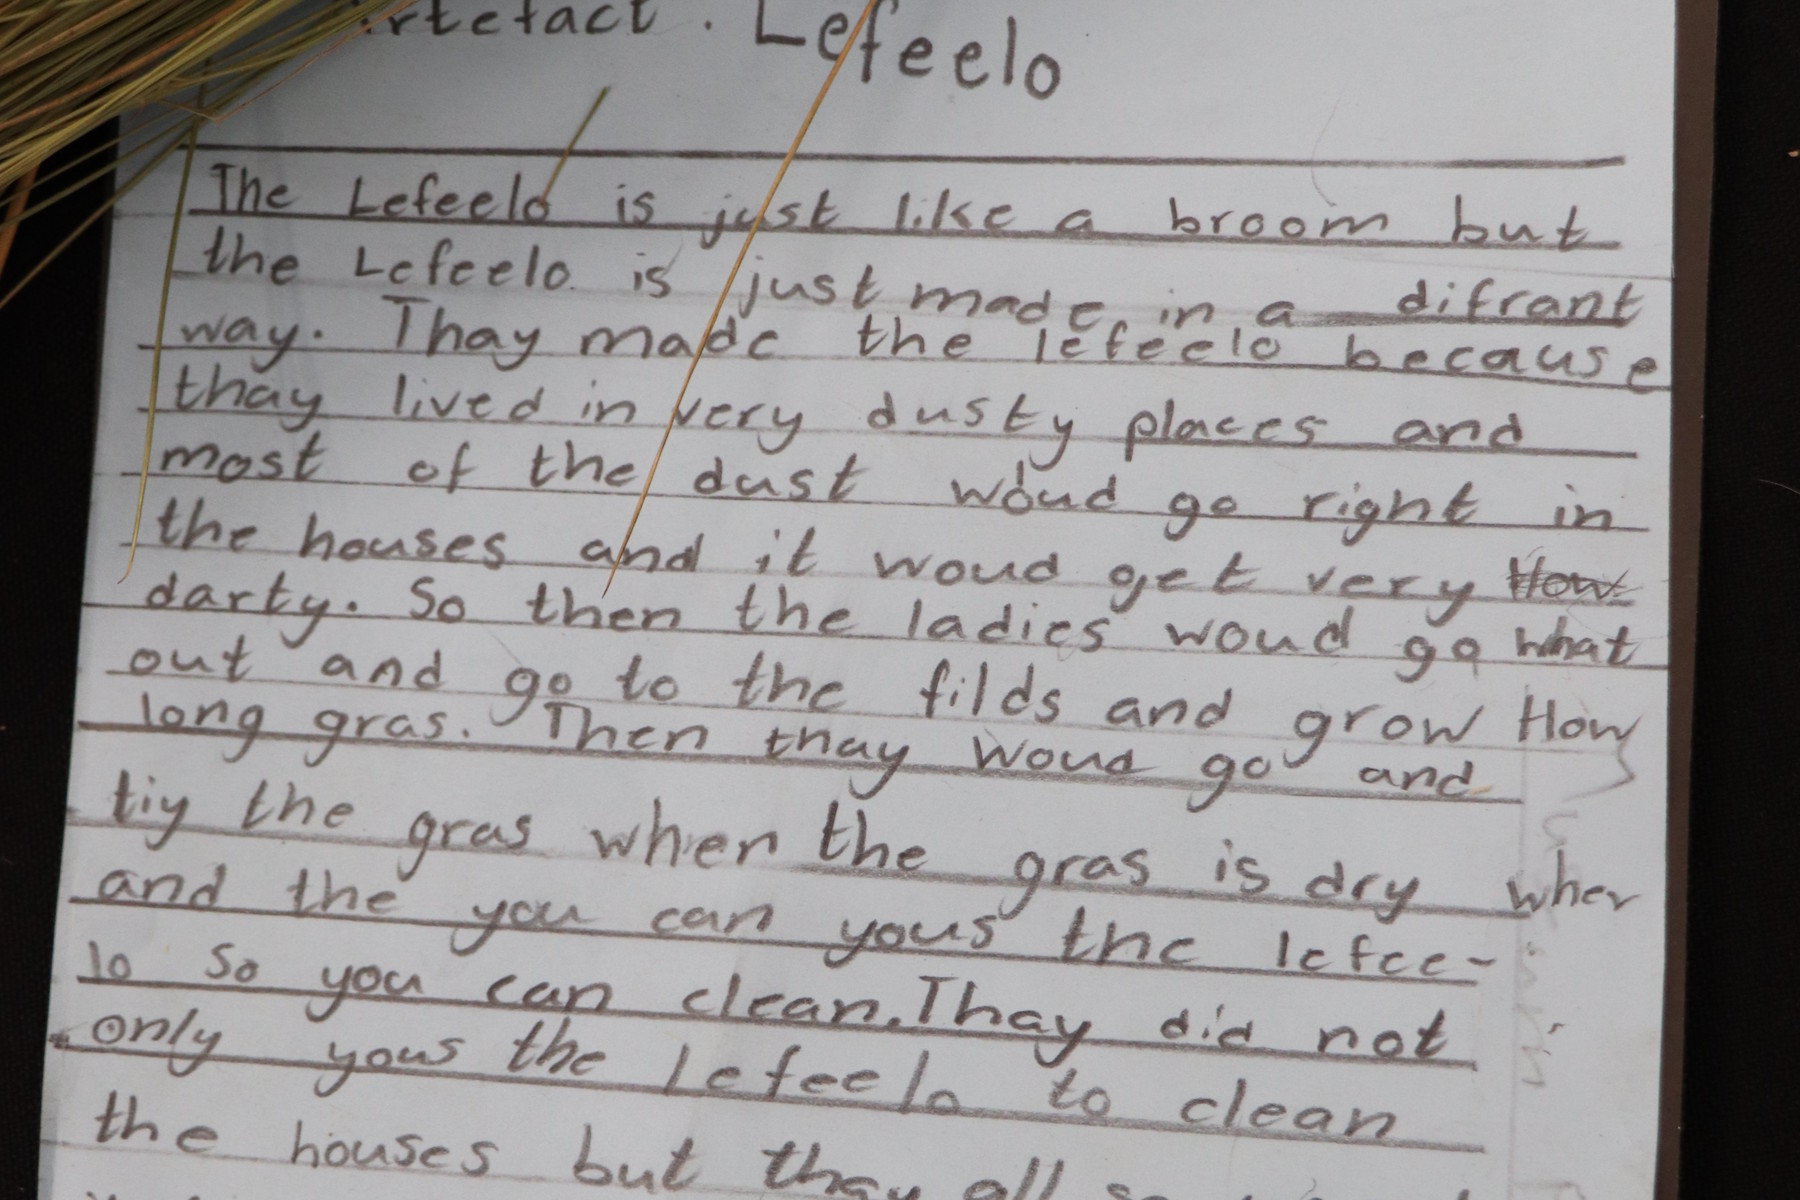 Artefact. Lefeelo
The Lefeelo is just like a broom but
the Lefeelo. is just made in a difrant
way. Thay made the lefeelo because
thay lived in very dusty places and
most of the dust woud go right in
the houses and it woud get very How
darty. So then the ladies woud go what
out and go to the filds and grow How
long gras. Then thay woud go and
tiy the gras when the gras is dry wher
and the you can yous the lefee-
lo so you can clean. Thay did not
only yous the Lefeelo to clean
the houses but thay all